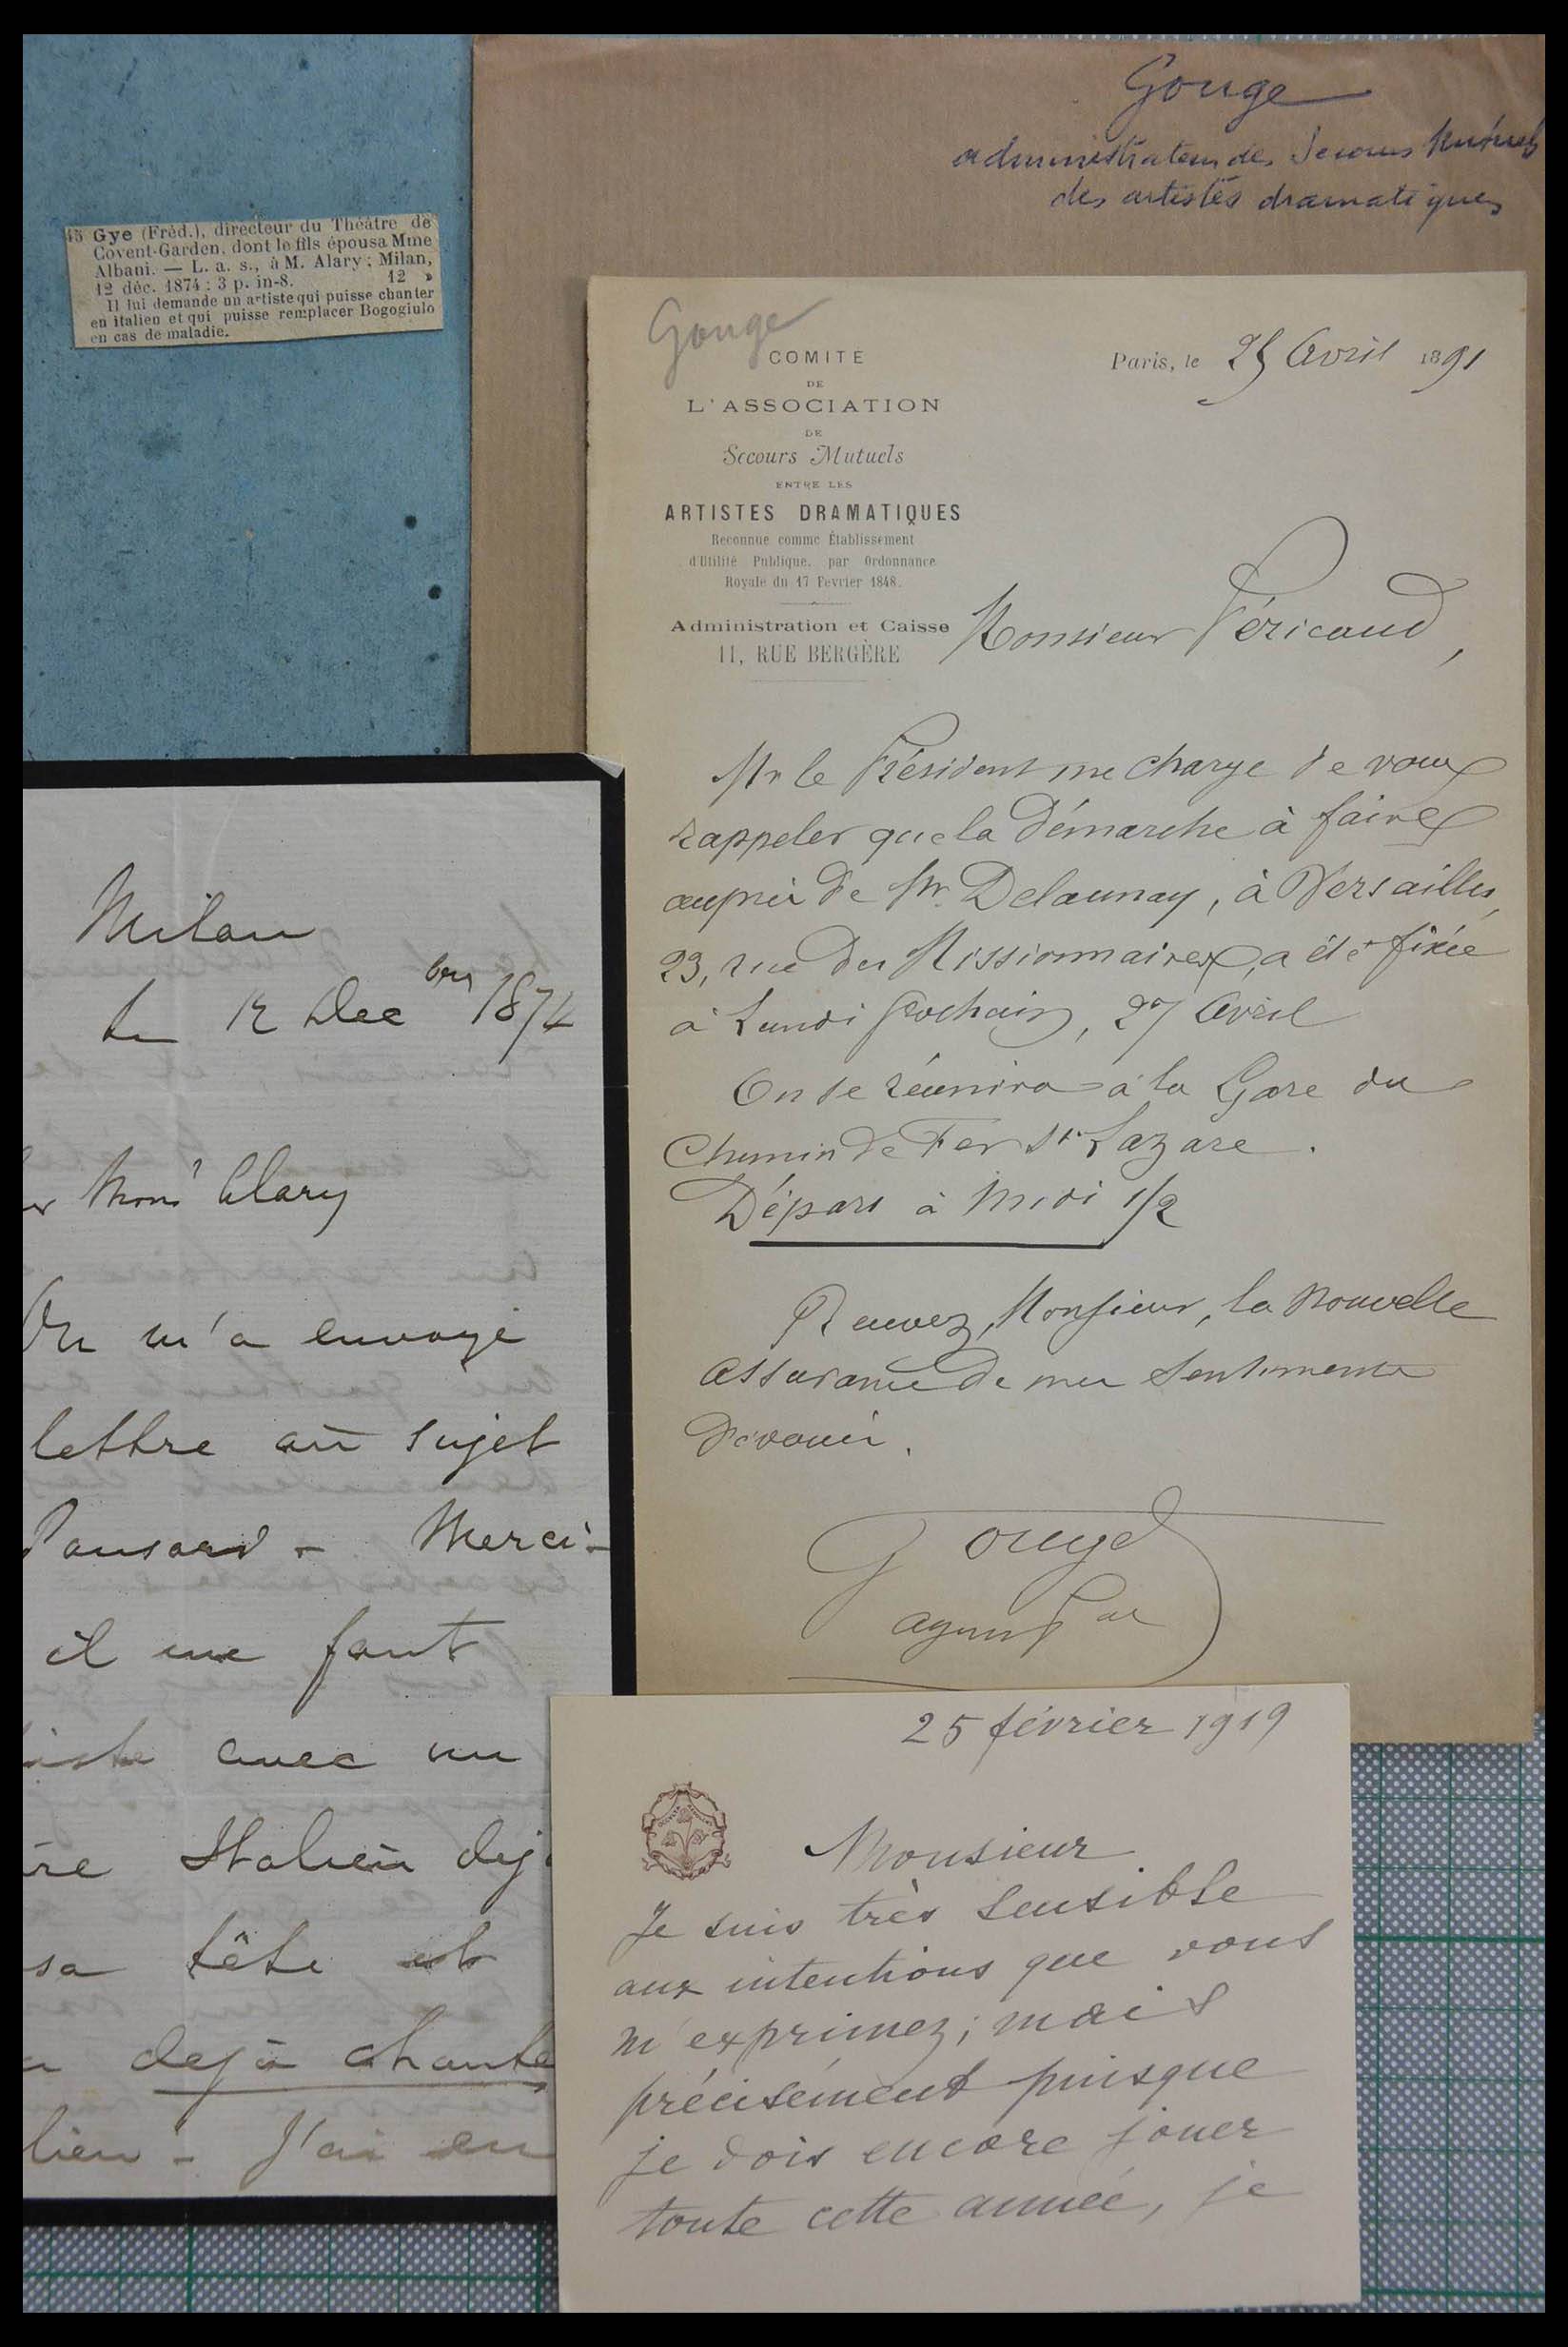 45 Gye (Fréd.), directeur du Théâtre de
Covent-Garden, dont le fils épousa Mme
Albani. — L. a. s., à M. Alary; Milan,
12 déc. 1874; 3 p. in-8. 12 »
Il lui demande un artiste qui puisse chanter
en italien et qui puisse remplacer Bogogiulo
en cas de maladie.
Gouge
administrateur des Secours Mutuels
des artistes dramatiques
Gouge
COMITÉ
DE
L'ASSOCIATION
DE
Secours Mutuels
ENTRE LES
ARTISTES DRAMATIQUES
Reconnue comme Établissement
d'Utilité Publique, par Ordonnance
Royale du 17 Février 1848.
Administration et Caisse
11, RUE BERGÈRE
Paris, le 25 Avril 1891
Monsieur Péricaud,
Mr le Président me charge de vous
rappeler que la démarche à faire
auprès de Mr. Delaunay, à Versailles,
23, rue des Missionnaires, a été fixée
à Lundi prochain, 27 Avril
On se réunira à la Gare du
Chemin de Fer St Lazare.
Départ à Midi 1/2
Recevez, Monsieur, la nouvelle
assurance de mes sentiments
dévoués.
Gouge
agent
Milan
le 12 Decbre 1874
Monr Alary
On m'a envoyé
lettre au sujet
Ponsard - Merci -
il me faut
avec un
Italien dej
sa tête et
dejà chanté
lien - J'ai en
25 février 1919
Monsieur
Je suis très sensible
aux intentions que vous
m'exprimez; mais
précisément puisque
je dois encore jouer
toute cette année, je